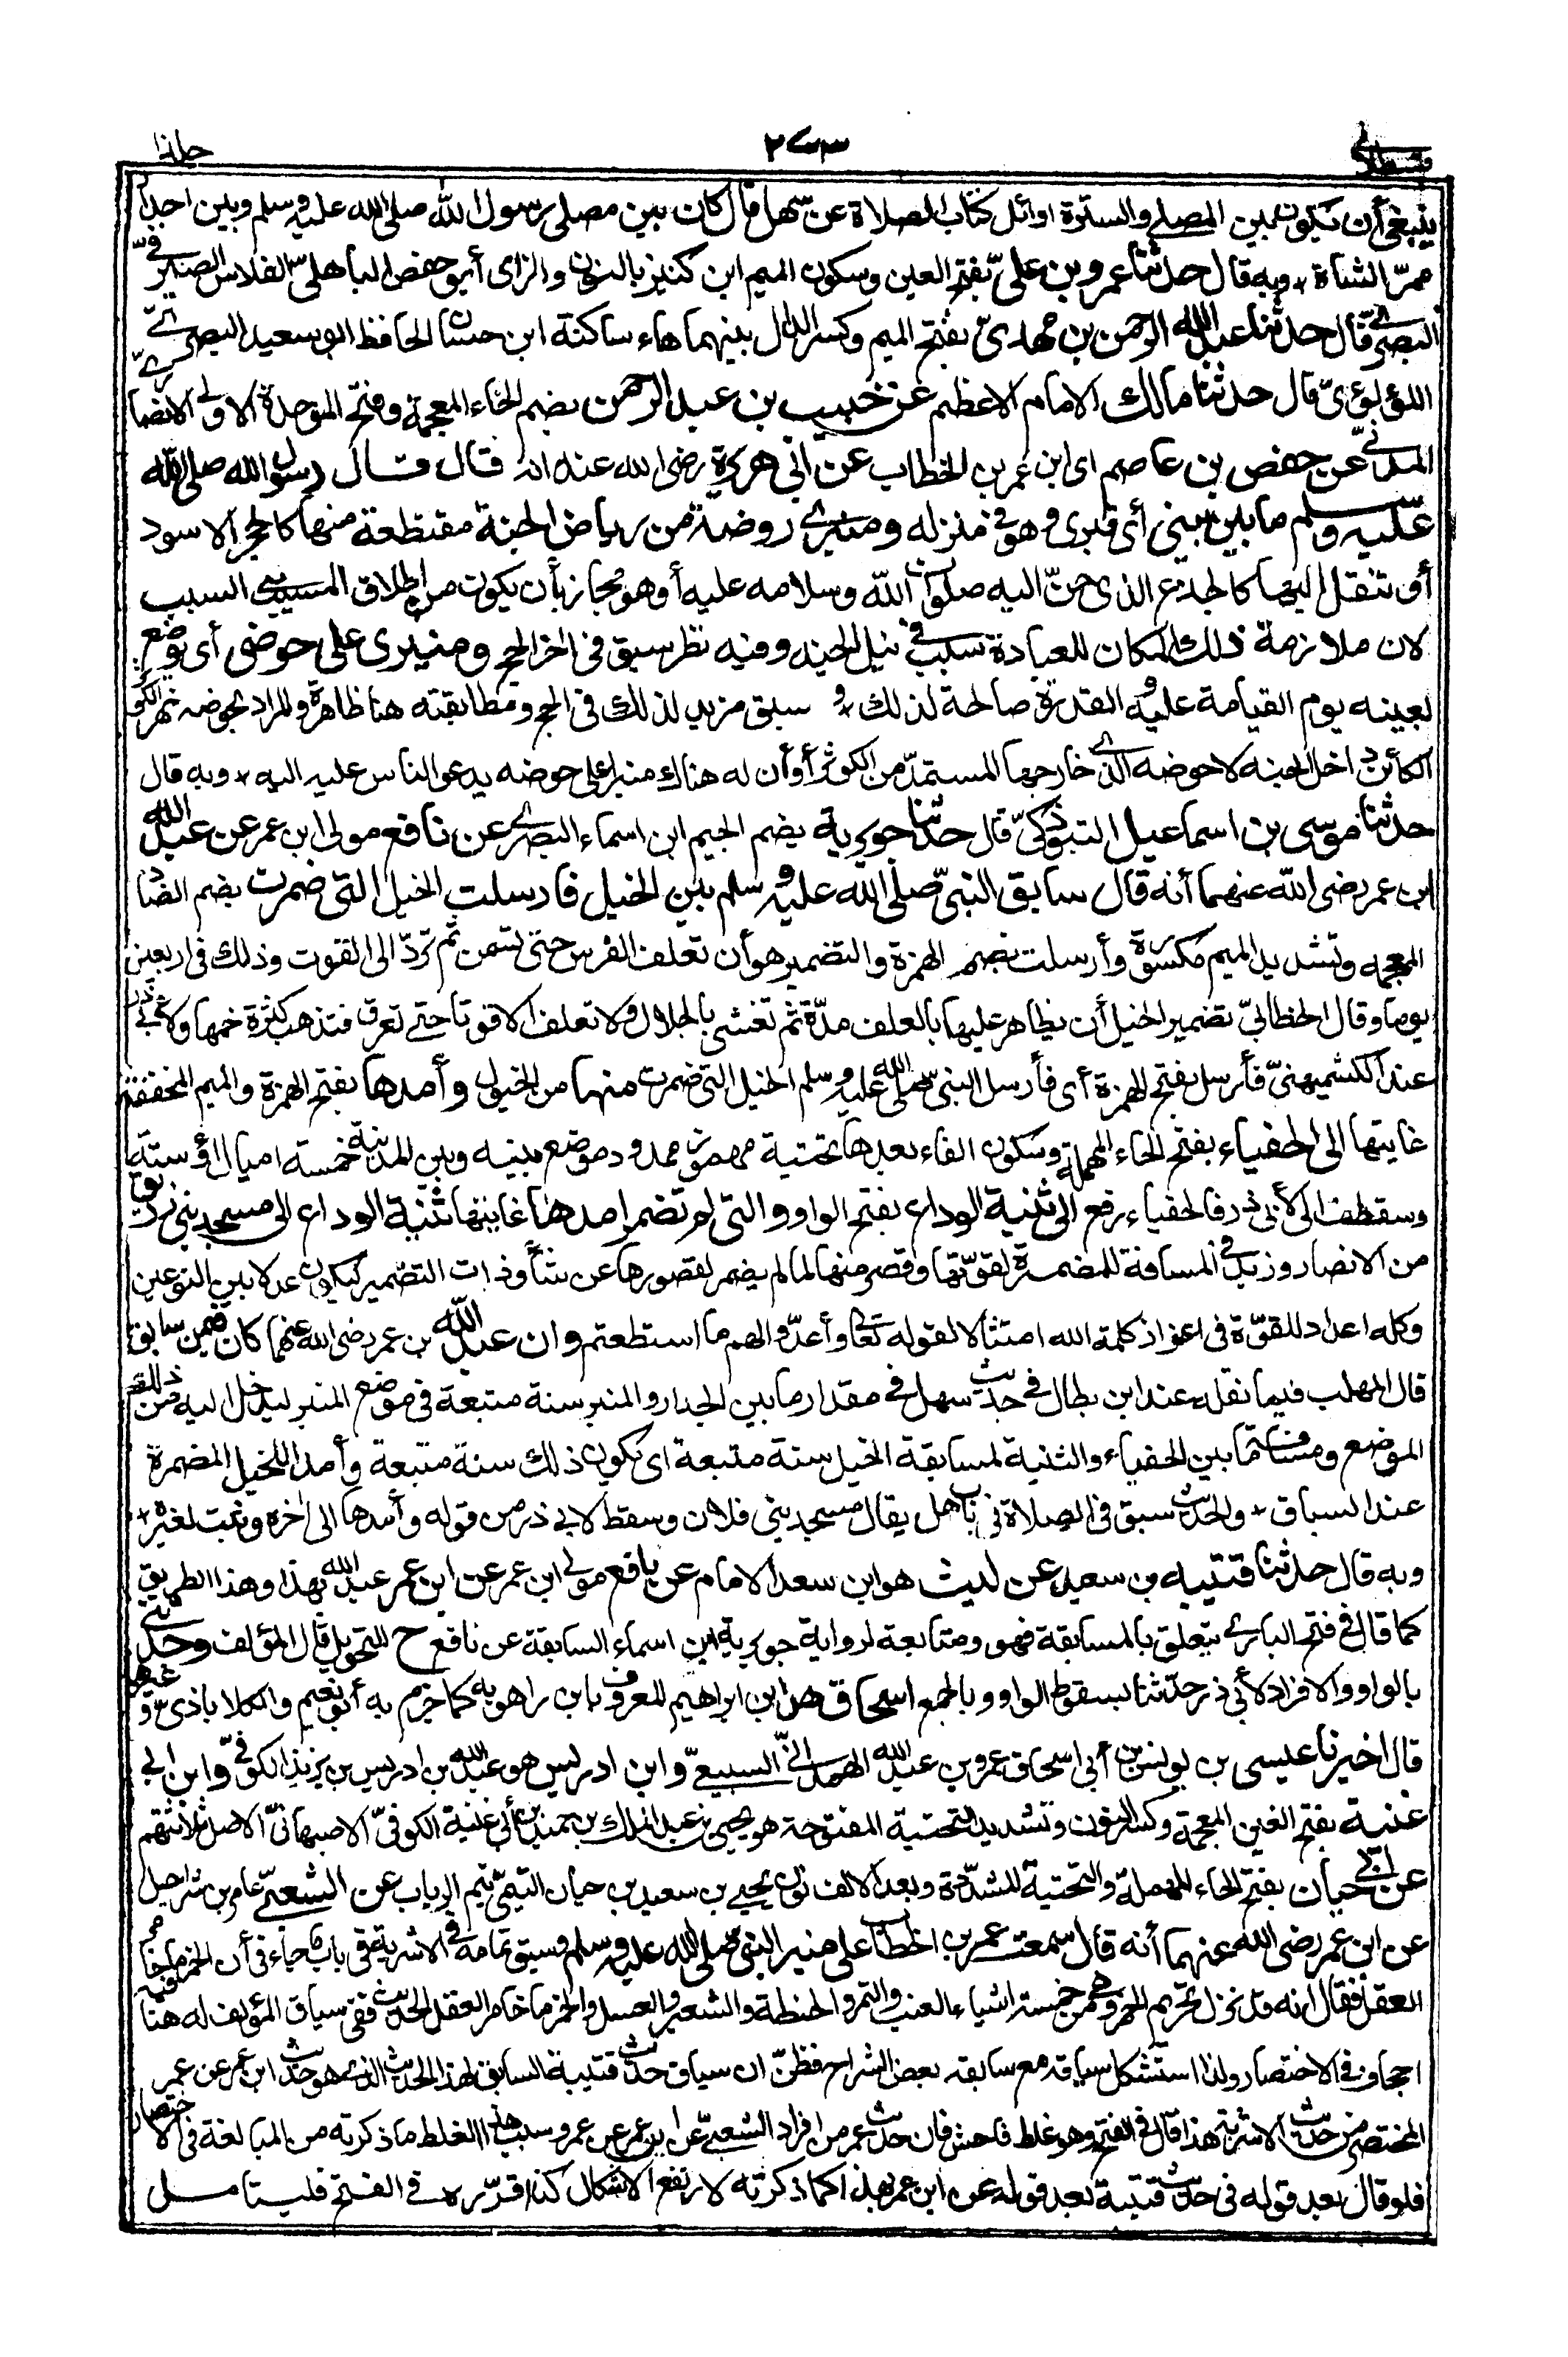 قسطلانى ٢٧٣ جلد١٠
ينبغى أن يكون بين المصلى والسترة اوائل كتاب الصلاة عن سهل قال كان بين مصلى رسول الله صلى الله عليه وسلم وبين الجدار
ممرّ الشاة * وبه قال حدثنا عمرو بن علىّ بفتح العين وسكون الميم ابن كنيز بالنون والزاى أبو حفص الباهلى الفلاس الصيرفىّ
البصرىّ قال حدثنا عبد الرحمن بن مهدىّ بفتح الميم وكسر الدال بينهما هاء ساكنة ابن حسان الحافظ ابو سعيد البصرىّ
اللؤلؤىّ قال حدثنا مالك الامام الاعظم عن خبيب بن عبد الرحمن بضم الخاء المعجمة وفتح الموحدة الاولى الانصارىّ
المدنىّ عن حفص بن عاصم اى ابن عمر بن الخطاب عن ابى هريرة رضى الله عنه انه قال قال رسول الله صلى الله
عليه وسلم ما بين بيتى أى قبرى وهو فى منزله ومنبرى روضة من رياض الجنة مقتطعة منها كالحجر الاسود
أو تنقل اليها كالجذع الذى حنّ اليه صلوات الله وسلامه عليه أو هو مجاز بأن يكون من اطلاق المسبب على السبب
لان ملازمة ذلك المكان للعبادة سبب فى نيل الجنة وفيه نظر سبق فى اخر الحج ومنبرى على حوضى أى يوضع
بعينه يوم القيامة عليه والقدرة صالحة لذلك * وسبق مزيد لذلك فى الحج ومطابقته هنا ظاهرة والمراد بحوضه نهر الكوثر
الكائن داخل الجنة لا حوضه الذى خارجها المستمدّ من الكوثر أو أن له هناك منبرا على حوضه يدعو الناس عليه اليه * وبه قال
حدثنا موسى بن اسماعيل التبوذكىّ قال حدّثنا جويرية بضم الجيم ابن اسماء البصرى عن نافع مولى ابن عمر عن عبد الله
ابن عمر رضى الله عنهما أنه قال سابق النبىّ صلى الله عليه وسلم بين الخيل فارسلت الخيل التى ضمرت بضم الضاد
المعجمه وتشديد الميم مكسورة وأرسلت بضم الهمزة والتضمير هو أن تعلف الفرس حتى تسمن ثم تردّ الى القوت وذلك فى اربعين
يوما وقال الخطابىّ تضمير الخيل أن يظاهر عليها بالعلف مدّة ثم تغشى بالجلال ولا تعلف الا قوتا حتى تعرق فتذهب كثرة لحمها ولابى ذر
عند الكشميهنىّ فأرسل بفتح الهمزة أى فأرسل النبى صلى الله عليه وسلم الخيل التى ضمرت منها من الخيول وأمدها بفتح الهمزة والميم المخففة
غايتها الى الحفياء بفتح الحاء المهملة وسكون الفاء بعدها تحتية مهموز ممدود موضع بينه وبين المدينة خمسة اميال أو ستة
وسقط لفظ الى لأبى ذر فالحفياء رفع الى ثنية الوداع بفتح الواو والتى لم تضمر امدها غايتها ثنية الوداع الى مسجد بنى زريق
من الانصار وزيد فى المسافة للمضمرة لقوّتها وقصر منها لما لم يضمر لقصورها عن شأو ذات التضمير ليكون عدلا بين النوعين
وكله اعداد للقوّة فى اعزاز كلمة الله امتثالا لقوله تعالى وأعدّوا لهم ما استطعتم وان عبد الله بن عمر رضى الله عنهما كان فيمن سابق
قال المهلب فيما نقله عنه ابن بطال فى حديث سهل فى مقدار ما بين الجدار والمنبر سنة متبعة فى موضع المنبر ليدخل اليه من ذلك
الموضع ومسافة ما بين الحفياء والثنية لمسابقة الخيل سنة متبعة اى يكون ذلك سنة متبعة وأمدا للخيل المضمرة
عند السباق * والحديث سبق فى الصلاة فى باب هل يقال مسجد بنى فلان وسقط لابى ذر من قوله وأمدها الى اخره وثبت لغيره *
وبه قال حدثنا قتيبه بن سعيد عن ليث هو ابن سعد الامام عن نافع مولى ابن عمر عن ابن عمر عبد الله بهذا وهذا الطريق
كما قال فى فتح البارى يتعلق بالمسابقة فهو متابعة لرواية جويرية ابن اسماء السابقة عن نافع ح للتحويل قال المؤلف وحدثنى
بالواو والافراد لأبى ذر حدّثنا بسقوط الواو وبالجمع اسحاق هو ابن ابراهيم المعروف بابن راهويه كما جزم به أبو نعيم والكلاباذىّ وغيرهما
قال اخبرنا عيسى بن يونس بن أبى اسحاق عمرو بن عبد الله الهمدانىّ السبيعىّ وابن ادريس هو عبد الله بن ادريس بن يزيد الكوفىّ وابن ابى
غنية بفتح الغين المعجمة وكسر النون وتشديد التحتية المفتوحة هو يحيى بن عبد الملك بن حميد بن أبى غنية الكوفىّ الاصبهانىّ الاصل ثلاثتهم
عن ابى حيان بفتح الحاء المهملة والتحتية المشدّدة وبعد الالف نون يحيى بن سعيد بن حيان التيمىّ تيم الرباب عن الشعبىّ عامر بن شراحيل
عن ابن عمر رضى الله عنهما أنه قال سمعت عمر بن الخطاب على منبر النبىّ صلى الله عليه وسلم وسيق تمامه فى الاشربة فى باب ما جاء فى أن الخمر ما خامر
العقل فقال انه قد نزل تحريم الخمر وهى من خمسة اشياء العنب والتمر والحنطة والشعير والعسل والخمر ما خامر العقل الحديث ففى سياق المؤلف له هنا
اجحاف فى الاختصار ولذا استشكل سياقه مع سابقه بعض الشراح فظنّ ان سياق حديث قتيبة السابق لهذا الحديث الذى هو حديث ابن عمر عن عمر
المختصر من حديث الاشربة هذا قال فى الفتح وهو غلط فاحش فان حديث عمر من افراد الشعبىّ عن ابن عمر عن عمر وسبب هذا الغلط ما ذكرته من المبالغة فى الاختصار
فلو قال بعد قوله فى حديث قتيبة بعد قوله عن ابن عمر بهذا كما ذكرته لارتفع الاشكال كذا قرّره فى الفتح فليتامل